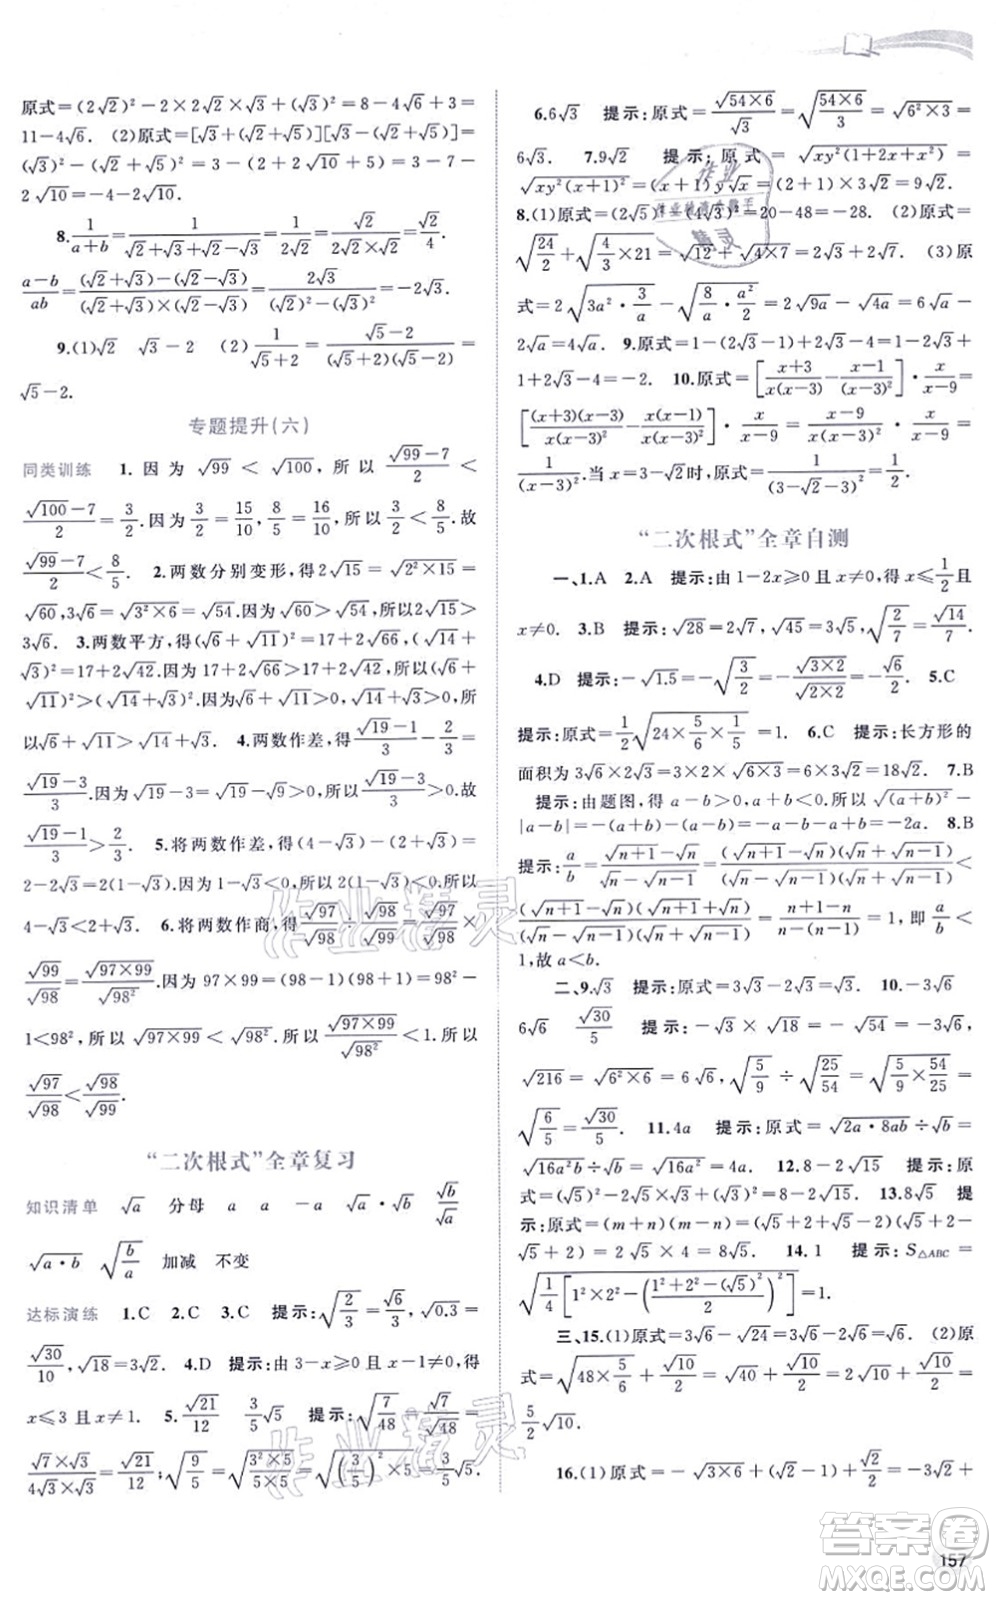 原式=(2√2)²-2×2√2×√3+(√3)²=8-4√6+3=
11-4√6. (2)原式=[√3+(√2+√5)][√3-(√2+√5)]=
(√3)²-(√2+√5)²=3-(2+2√10+5)=3-7-
2√10=-4-2√10.
8.1/(a+b)=1/(√2+√3+√2-√3)=1/(2√2)=√2/(2√2×√2)=√2/4.
(a-b)/ab=((√2+√3)-(√2-√3))/((√2+√3)(√2-√3))=2√3/((√2)²-(√3)²)=-2√3.
9.(1)√2 √3-2 (2)1/(√5+2)=(√5-2)/((√5+2)(√5-2))=
√5-2.
专题提升(六)
同类训练 1.因为√99<√100,所以(√99-7)/2<
(√100-7)/2=3/2.因为3/2=15/10,8/5=16/10,所以3/2<8/5.故
(√99-7)/2<8/5. 2.两数分别变形,得2√15=√(2²×15)=
√60,3√6=√(3²×6)=√54.因为√60>√54,所以2√15>
3√6. 3.两数平方,得(√6+√11)²=17+2√66,(√14+
√3)²=17+2√42.因为17+2√66>17+2√42.所以(√6+
√11)²>(√14+√3)².因为√6+√11>0,√14+√3>0,所
以√6+√11>√14+√3. 4.两数作差,得(√19-1)/3-2/3=
(√19-3)/3.因为√19>√16>3,所以√19-3>0,(√19-3)/3>0.故
(√19-1)/3>2/3. 5.将两数作差,得(4-√3)-(2+√3)=
2-2√3=2(1-√3).因为1-√3<0,所以2(1-√3)<0.所以
4-√3<2+√3. 6.将两数作商,得√97/√98÷√98/√99=√97/√98×
√99/√98=√(97×99)/√98².因为97×99=(98-1)(98+1)=98²-
1<98²,所以√(97×99)<√98².所以√(97×99)/√98²<1.所以
√97/√98<√98/√99.
“二次根式”全章复习
知识清单 √a 分母 a a -a √a·√b √b/√a
√(a·b) √(b/a) 加减 不变
达标演练 1.C 2.C 3.C 提示:√(2/3)=√6/3,√0.3=
√30/10,√18=3√2. 4.D 提示:由3-x≥0且x-1≠0,得
x≤3且x≠1. 5.√21/12 3/5√5 提示:√(7/48)=√7/√48=
(√7×√3)/(4√3×√3)=√21/12;√(9/5)=√((3²×5)/(5×5))=√((3/5)²×5)=3/5√5.
6.6√3 提示:原式=√(54×6)/√3=√((54×6)/3)=√(6²×3)=
6√3. 7.9√2 提示:原式=√(xy²(1+2x+x²))=
√(xy²(x+1)²)=(x+1)y√x=(2+1)×3√2=9√2.
8.(1)原式=(2√5)²-(4√3)²=20-48=-28. (2)原式=
√(24/2)+√(4/3×21)=√12+√(4×7)=2√3+2√7. (3)原
式=2√(3a²·3/a)-√(8/a·a²/2)=2√9a-√4a=6√a-
2√a=4√a. 9.原式=1-(2√3)²+(√3)²+2√3+1=1-12+3+
1+2√3-4=-2. 10.原式=[(x+3)/(x(x-3))-(x-1)/(x-3)²]·x/(x-9)=
[((x+3)(x-3))/(x(x-3)²)-(x(x-1))/(x(x-3)²)]·x/(x-9)=(x-9)/(x(x-3)²)·x/(x-9)=
1/(x-3)².当x=3-√2时,原式=1/(3-√2-3)²=1/2.
“二次根式”全章自测
一、1.A 2.A 提示:由1-2x≥0且x≠0,得x≤1/2且
x≠0. 3.B 提示:√28=2√7,√45=3√5,√(2/7)=√14/7.
4.D 提示:-√1.5=-√(3/2)=-√(3×2)/√(2×2)=-√6/2. 5.C
提示:原式=1/2√(24×5/6×1/5)=1. 6.C 提示:长方形的
面积为3√6×2√3=3×2×√(6×3)=6×3√2=18√2. 7.B
提示:由题图,得a-b>0,a+b<0.所以√(a+b)²-
|a-b|=-(a+b)-(a-b)=-a-b-a+b=-2a. 8.B
提示:a/b=(√(n+1)-√n)/(√n-√(n-1))=((√(n+1)-√n)(√n+√(n-1)))/((√n-√(n-1))(√n+√(n-1)))<
((√(n+1)-√n)(√n+√(n+1)))/((√n-√(n-1))(√n+√(n-1)))=(n+1-n)/(n-(n-1))=1,即a/b<
1,故a<b.
二、9.√3 提示:原式=3√3-2√3=√3. 10.-3√6
6√6 √30/5 提示:-√3×√18=-√54=-3√6,
√216=√(6²×6)=6√6,√(5/9)÷√(25/54)=√(5/9×54/25)=
√(6/5)=√30/5. 11.4a 提示:原式=√(2a·8ab)÷√b=
√(16a²b)÷√b=√(16a²)=4a. 12.8-2√15 提示:原
式=(√5)²-2√5×√3+(√3)²=8-2√15. 13.8√5 提
示:原式=(m+n)(m-n)=(√5+2+√5-2)(√5+2-
√5+2)=2√5×4=8√5. 14.1 提示:S△ABC=
√(1/4[1²×2²-((1²+2²-(√5)²)/2)²])=1.
三、15.(1)原式=3√6-√24=3√6-2√6=√6. (2)原
式=√(48×5/6)+√(5/2)=√40+√(5/2)=2√10+√10/2=
5/2√10.
16.(1)原式=-√(3×6)+(√2-1)+√2/2=-3√2+
157